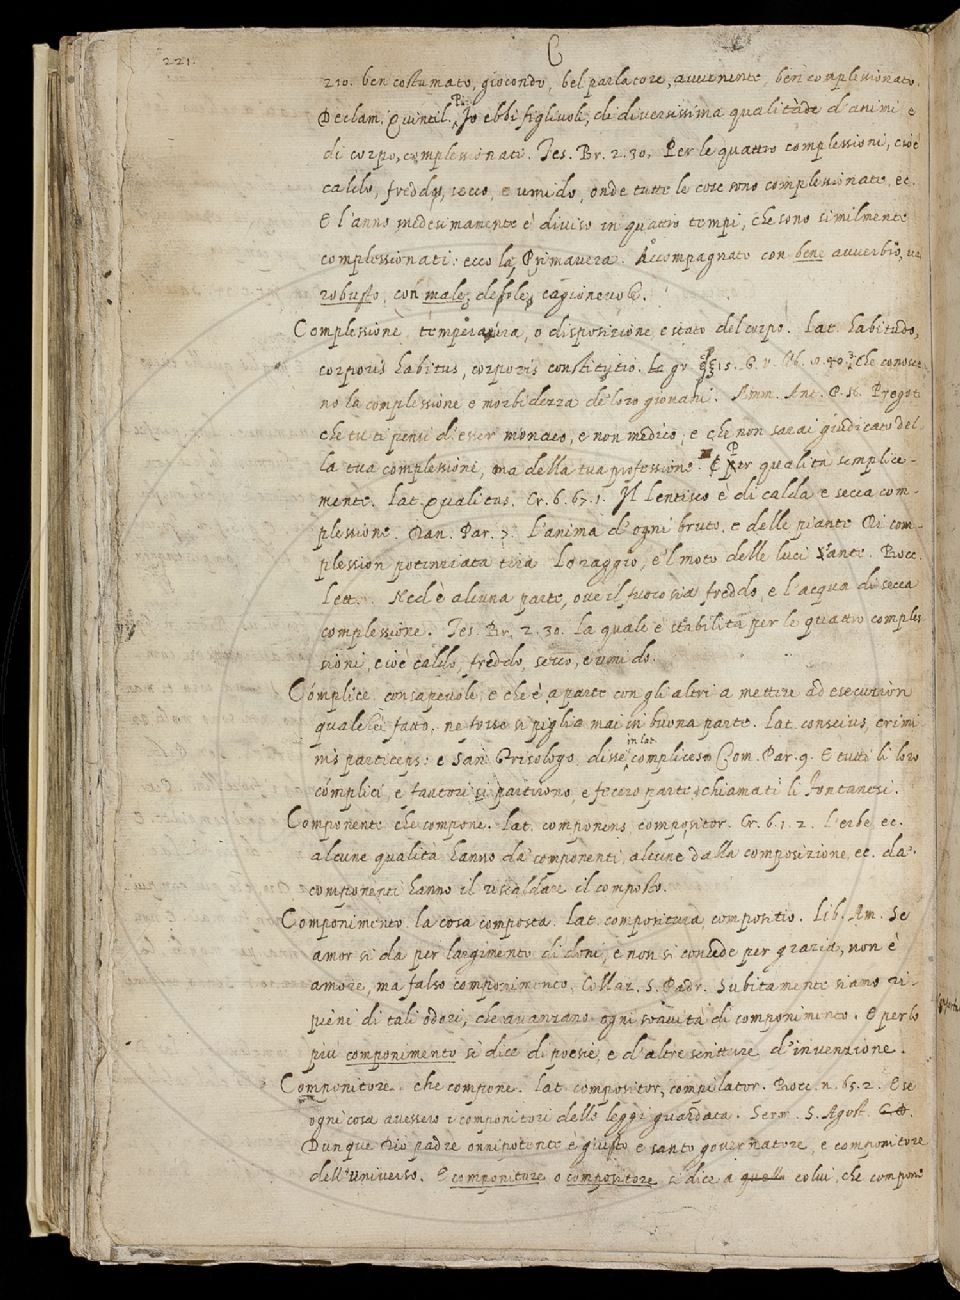 221.
C
210. ben costumato, giocondo, bel parlatore, avvenente, ben complessionato.
Declam. Quintil. P. Io ebbi figlivoli, di diversissima qualitade d'animi, e
di corpo, complessionati. Tes. Br. 2. 30. Per le quattro complessioni, cioè
caldo, freddo, secco, e umido, onde tutte le cose sono complessionate, ec.
E l'anno medesimamente è diviso in quattro tempi, che sono similmente
complessionati: ecco la Primavera. Accompagnato con bene avverbio, va
robusto, con male, debole, cagionevole.
Complessione, temperatura, o disposizione, e stato del corpo. Lat. habitudo,
corporis habitus, corporis constitutio. La gr. che conosce
no la complessione e morbidezza de' loro giovani. Amm. Ant. Pregoti
che tu ti pensi d'esser monaco, e non medico, e che non sarai giudicato del
la tua complessioni, ma della tua professione. E Per qualità semplice-
mente. Lat. Qualitas. Cr. 6. 67. 1. Il Lentisco è di calda e secca com-
plessione. Dan. Par. 7. L'anima d'ogni bruto, e delle piante Di com-
plession potenziata tira Lo raggio, e 'l moto delle luci sante. Bocc.
Lett. Nel è alcuna parte, ove il fuoco sia freddo, e l'acqua di secca
complessione. Tes. Br. 2. 30. La quale è stabilita per le quattro comples
sioni, cioè caldo, freddo, secco, e umido.
Cómplice, consapevole, e che è a parte con gli altri a mettere ad esecuzion
qualche fatto. ne forse si piglia mai in buona parte. Lat. conscius, crimi
nis particeps: e San Grisologo, disse in lat. complices. Com. Par. 9. E tutti li loro
cómplici, e fautori si partirono, e fecero parte chiamati li Fontanesi.
Componente che compone. Lat. componens, compositor. Cr. 6. 1. 2. L'erbe ec.
alcune qualità hanno da' componenti, alcune dalla composizione, ec. da'
componenti hanno il riscaldare il composto.
Componimento. la cosa composta. Lat. compositura, compositio. Lib. Am. Se
amor si dà per largimento di doni, e non si concede per grazia, non è
amore, ma falso componimento. Collaz. S. Padr. Subitamente siamo ri-
pieni di tali odori, che avanzano ogni soavità di componimento. E per lo
più componimento si dice di poesie, e d'altre scritture d'invenzione.
Componitore. che compone. Lat. compositor, compilator. Bocc. n. 65. 2. E se
ogni cosa avessero i componitori delle leggi guardata. Serm. S. Agost.
Dunque Dio padre onnipotente e giusto e santo governatore, e componitore
dell'universo. E componitore o compositore si dice a quello colui, che compone